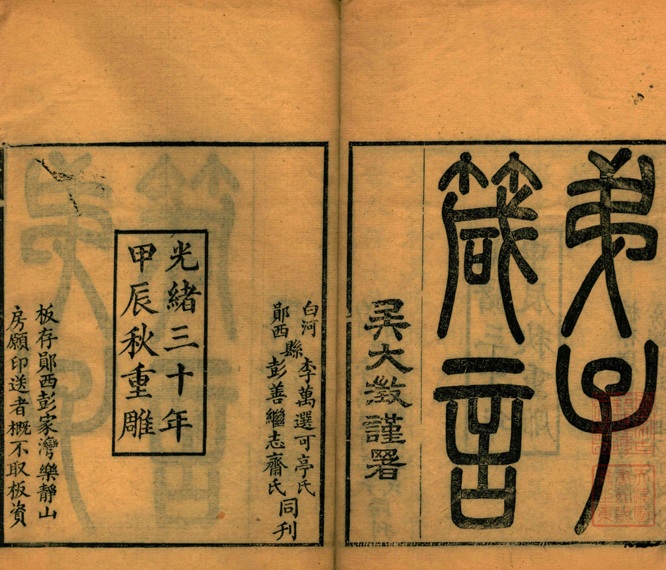 弟子
箴言
吳大澂謹署
白河
鄖西
縣
李萬選可亭氏
彭善繼志齋氏
同刊
光緒三十年
甲辰秋重雕
板存鄖西彭家灣樂靜山
房願印送者概不取板資